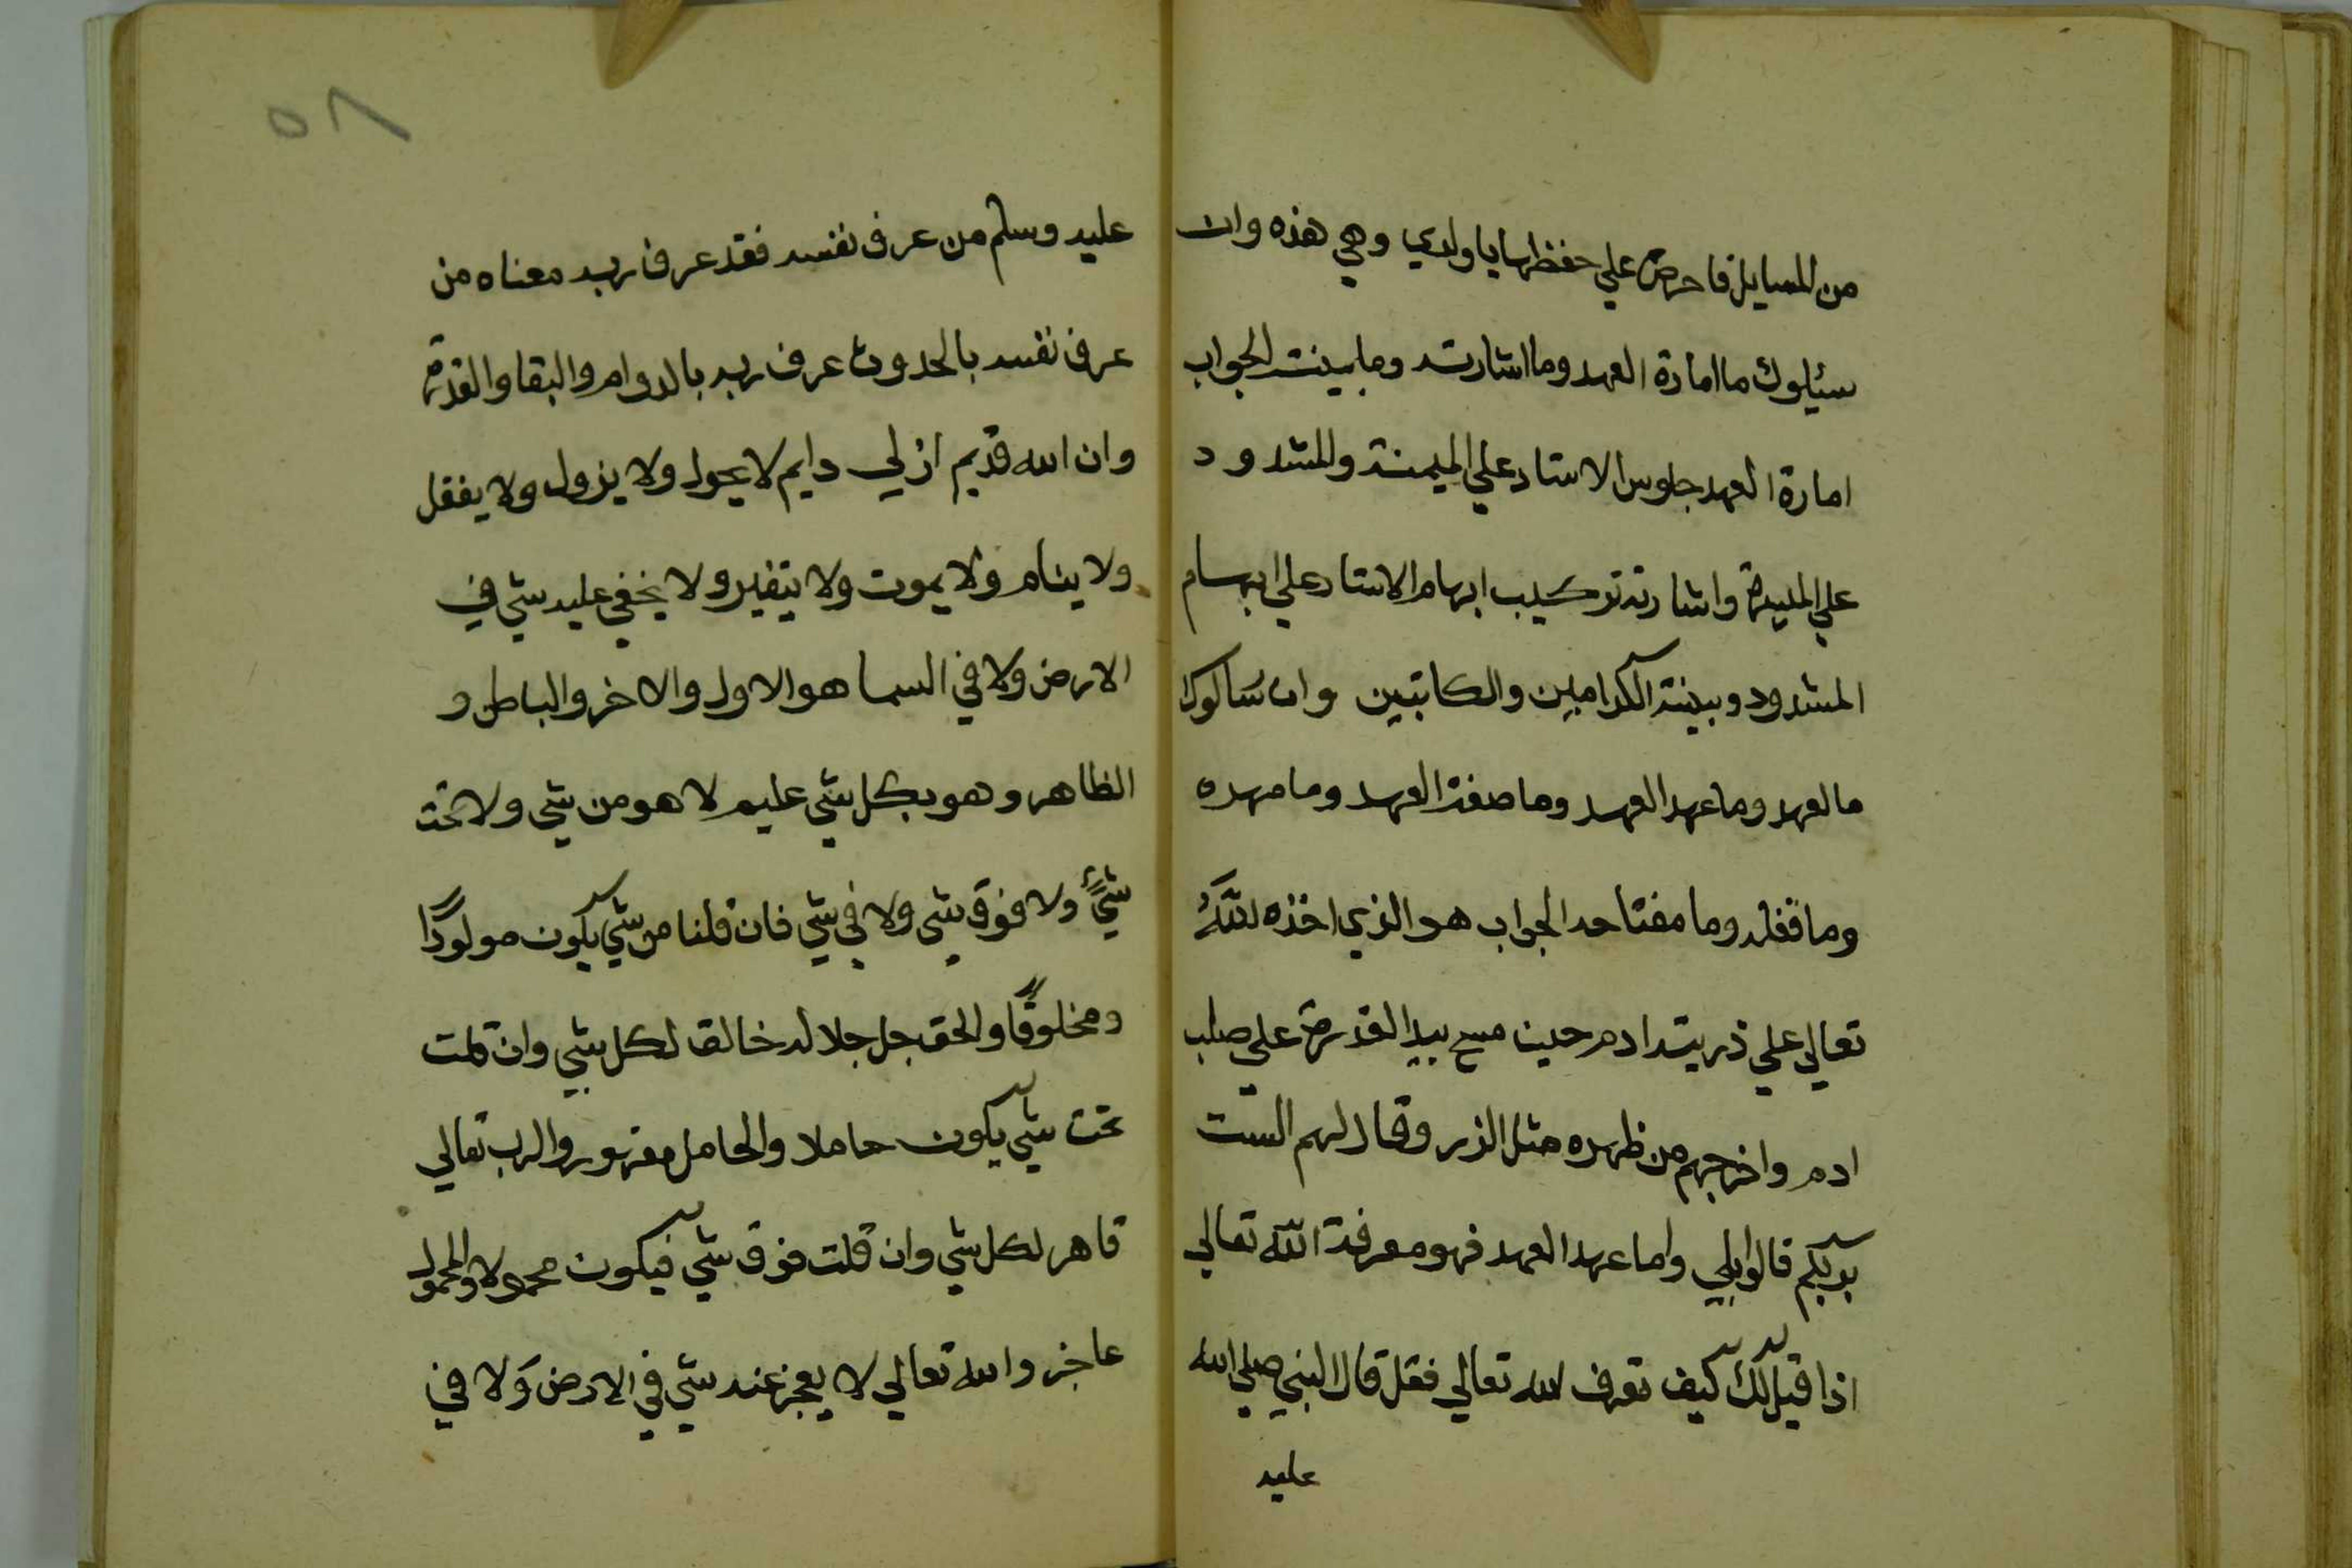 من المسايل فاحرص علي حفظها يا ولدي وهي هذه وان
سئلوك ما امارة العهد وما اشارته وما بينته الجواب
امارة العهد جلوس الاستاد علي الميمنة والمشدود
علي الميسرة واشارته تركيب ابهام الاستاد علي ابهام
المشدود وبينته الكرامين والكاتبين وان سالوك
ما لعهد وما عهد العهد وما صفة العهد وما مهده
وما قفله وما مفتاحه الجواب هو الذي اخذه الله
تعالي علي ذريته ادم حين مسح بيد القدرة علي صلب
ادم واخرجهم من ظهره مثل الذر وقال لهم الست
بربكم قالوا بلي واما عهد العهد فهو معرفة الله تعالي
اذا قيل لك كيف تعرف الله تعالي فقل قال النبي صلي الله
عليه
٥٨
عليه وسلم من عرف نفسه فقد عرف ربه معناه من
عرف نفسه بالحدوث عرف ربه بالدوام والبقا والقدرة
وان الله قديم ازلي دايم لا يحول ولا يزول ولا يغفل
ولا ينام ولا يموت ولا يتغير ولا يخفي عليه شي في
الارض ولا في السما هو الاول والاخر والباطن و
الظاهر وهو بكل شي عليم لا هو من شي ولا تحت
شيءً ولا فوق شي ولا في شي فان قلنا من شي يكون مولودًا
ومخلوقًا والحق جل جلاله خالق لكل شي وان قلت
تحت شي يكون حاملا والحامل مقهور والرب تعالي
قاهر لكل شي وان قلت فوق شي فيكون محمولا والمحمول
عاجز والله تعالي لا يعجز عنه شي في الارض وَلا في